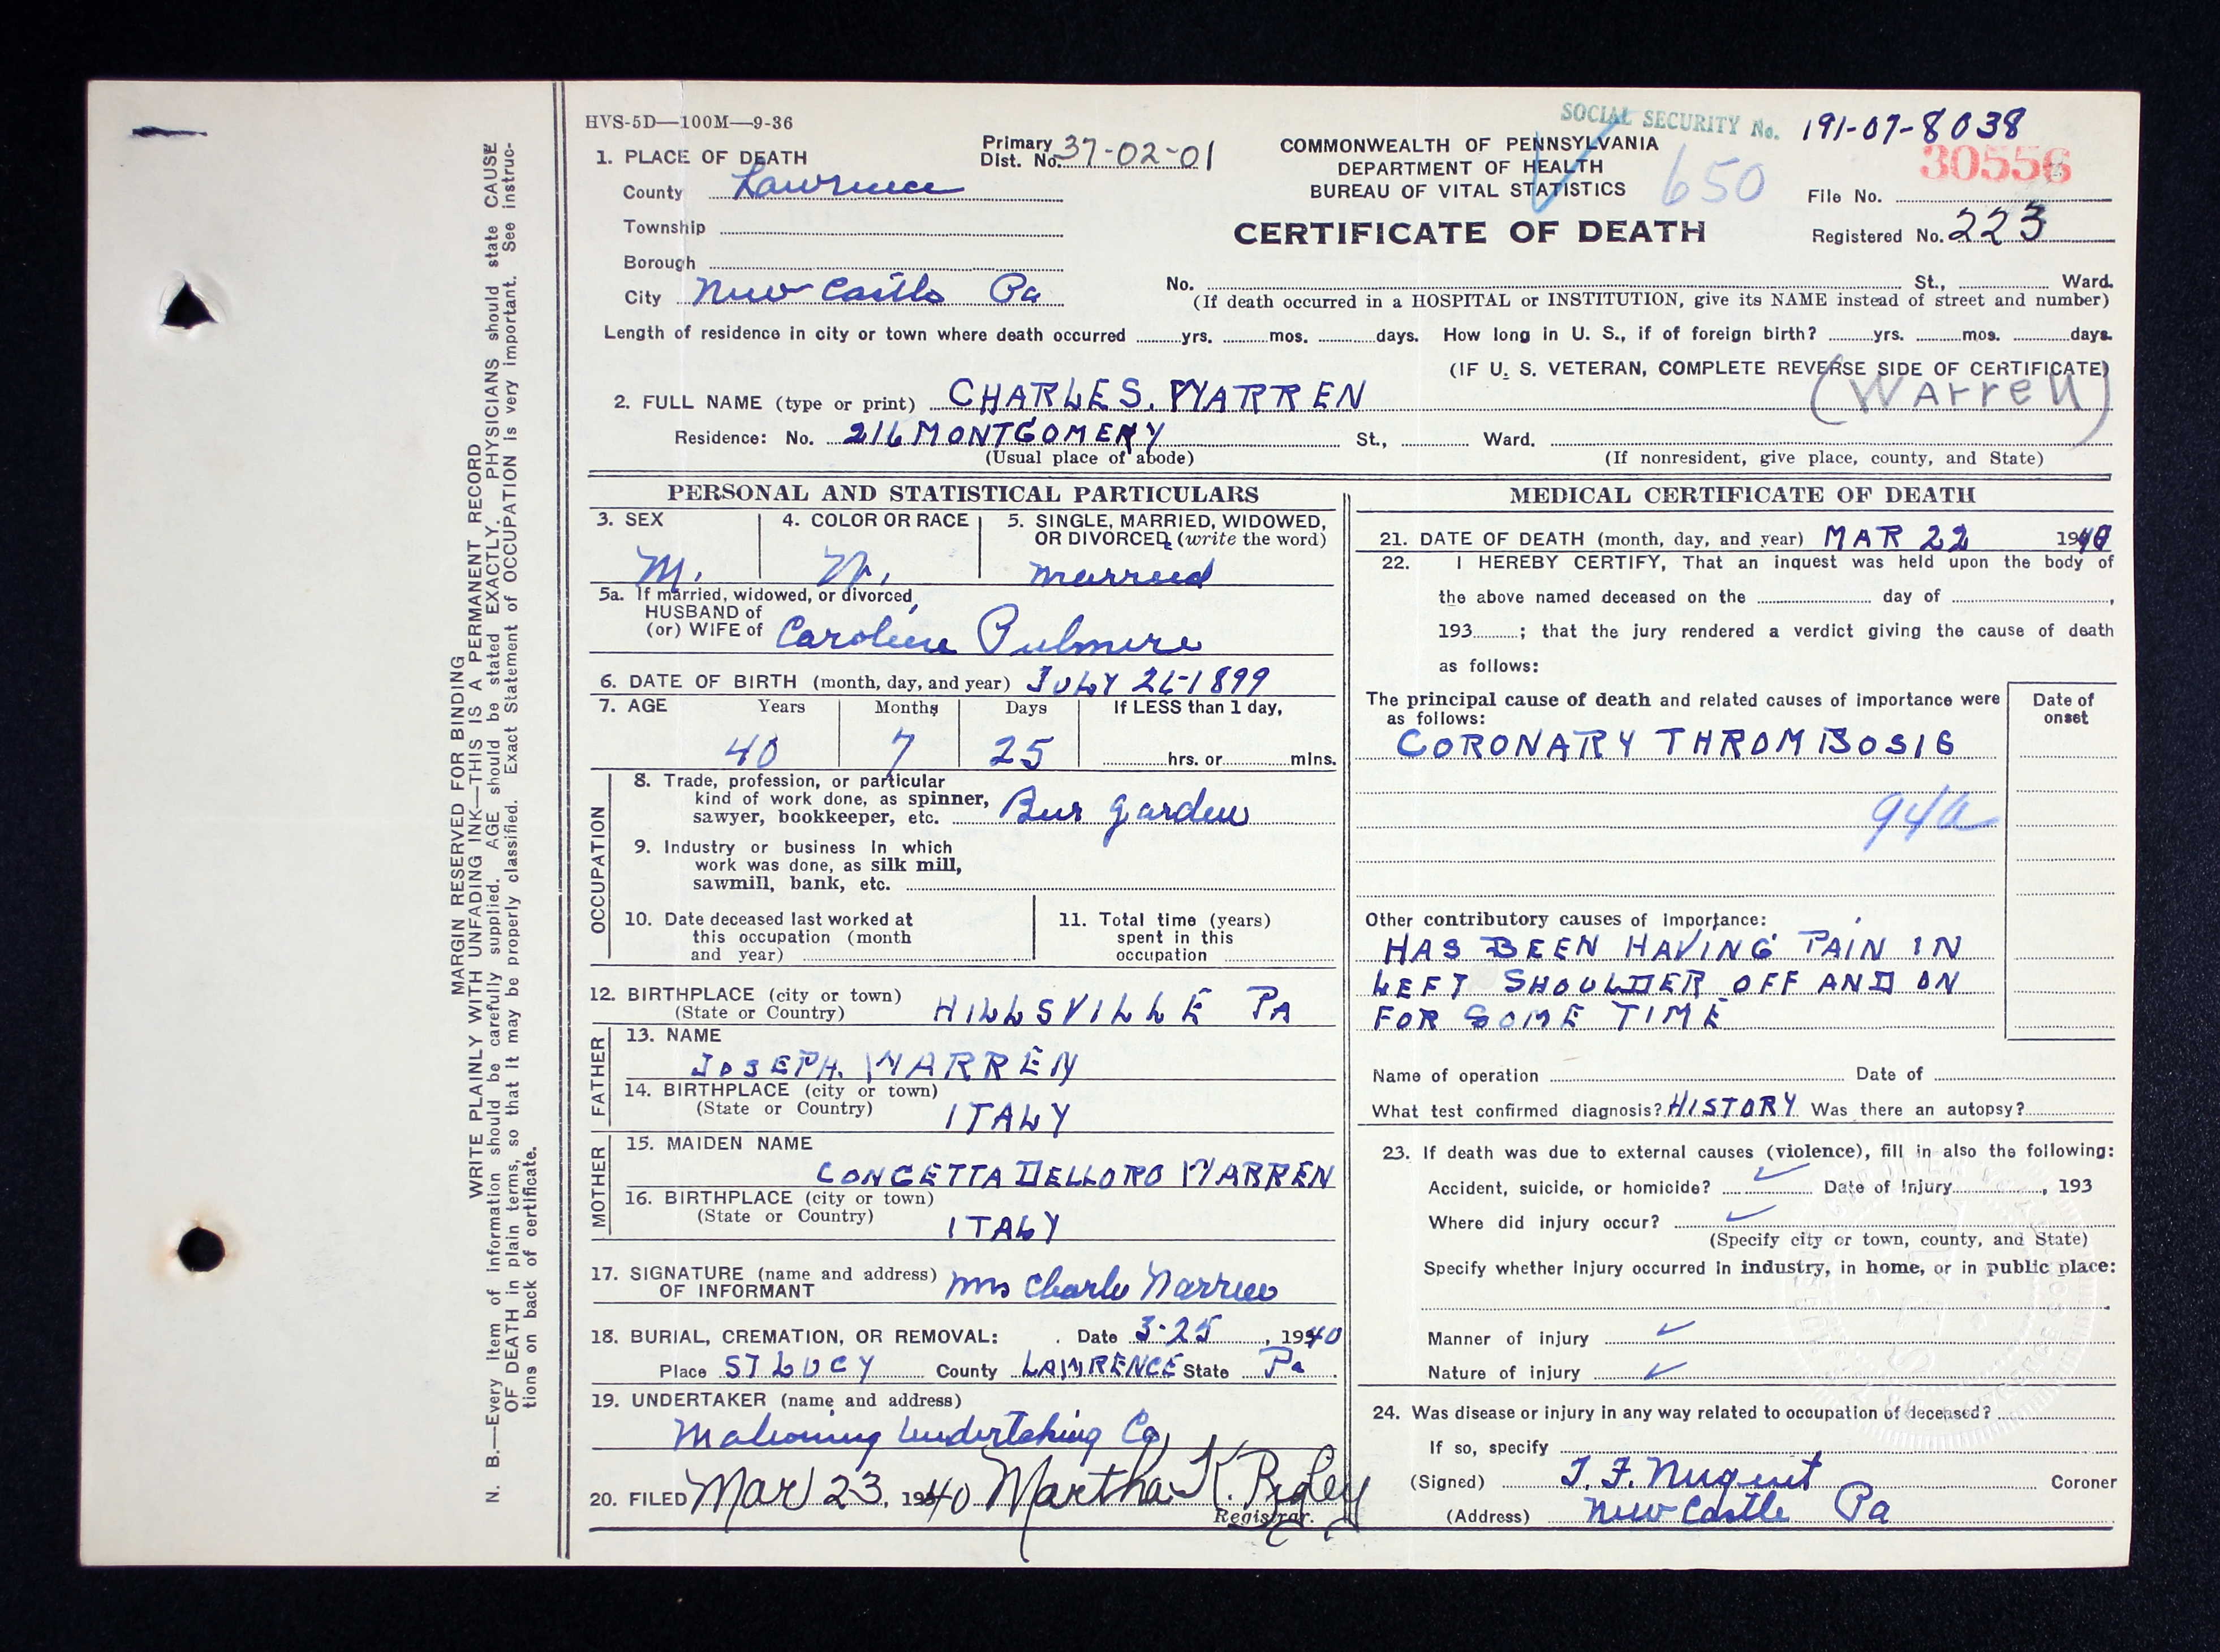 HVS-5D—100M—9-36
SOCIAL SECURITY No. 191-07-8038
COMMONWEALTH OF PENNSYLVANIA
DEPARTMENT OF HEALTH
BUREAU OF VITAL STATISTICS
650
30556
File No.
CERTIFICATE OF DEATH
Registered No. 223
Primary Dist. No. 37-02-01
1. PLACE OF DEATH
County Lawrence
Township
Borough
City New Castle Pa
No. St., Ward.
(If death occurred in a HOSPITAL or INSTITUTION, give its NAME instead of street and number)
Length of residence in city or town where death occurred yrs. mos. days. How long in U. S., if of foreign birth? yrs. mos. days.
(IF U. S. VETERAN, COMPLETE REVERSE SIDE OF CERTIFICATE)
2. FULL NAME (type or print) CHARLES. WARREN (Warren)
Residence: No. 216 MONTGOMERY St., Ward.
(Usual place of abode) (If nonresident, give place, county, and State)
PERSONAL AND STATISTICAL PARTICULARS
3. SEX
M.
4. COLOR OR RACE
W.
5. SINGLE, MARRIED, WIDOWED,
OR DIVORCED, (write the word)
married
5a. If married, widowed, or divorced
HUSBAND of
(or) WIFE of Caroline
6. DATE OF BIRTH (month, day, and year) JULY 26-1899
7. AGE Years Months Days If LESS than 1 day,
40 7 25 hrs. or mins.
OCCUPATION
8. Trade, profession, or particular
kind of work done, as spinner,
sawyer, bookkeeper, etc. Garden
9. Industry or business in which
work was done, as silk mill,
sawmill, bank, etc.
10. Date deceased last worked at
this occupation (month
and year)
11. Total time (years)
spent in this
occupation
12. BIRTHPLACE (city or town)
(State or Country) HILLSVILLE PA
FATHER
13. NAME
JOSEPH. WARREN
14. BIRTHPLACE (city or town)
(State or Country) ITALY
MOTHER
15. MAIDEN NAME
CONCETTA DELLORO WARREN
16. BIRTHPLACE (city or town)
(State or Country) ITALY
17. SIGNATURE (name and address)
OF INFORMANT Mrs Charles Warren
18. BURIAL, CREMATION, OR REMOVAL: Date 3-25, 1940
Place ST LUCY County LAWRENCE State Pa.
19. UNDERTAKER (name and address)
Mahoning Undertaking Co
20. FILED Mar 23, 1940 Martha K.
Registrar.
MEDICAL CERTIFICATE OF DEATH
21. DATE OF DEATH (month, day, and year) MAR 22 1940
22. I HEREBY CERTIFY, That an inquest was held upon the body of
the above named deceased on the day of ,
193 ; that the jury rendered a verdict giving the cause of death
as follows:
The principal cause of death and related causes of importance were
as follows:
Date of
onset
CORONARY THROMBOSIS
94a
Other contributory causes of importance:
HAS BEEN HAVING PAIN IN
LEFT SHOULDER OFF AND ON
FOR SOME TIME
Name of operation Date of
What test confirmed diagnosis? HISTORY Was there an autopsy?
23. If death was due to external causes (violence), fill in also the following:
Accident, suicide, or homicide? Date of Injury , 193
Where did injury occur?
(Specify city or town, county, and State)
Specify whether injury occurred in industry, in home, or in public place:
Manner of injury
Nature of injury
24. Was disease or injury in any way related to occupation of deceased?
If so, specify
(Signed) J. F. Nugent Coroner
(Address) New Castle Pa
MARGIN RESERVED FOR BINDING
WRITE PLAINLY WITH UNFADING INK—THIS IS A PERMANENT RECORD
N. B.—Every item of information should be carefully supplied. AGE should be stated EXACTLY. PHYSICIANS should state CAUSE
OF DEATH in plain terms, so that it may be properly classified. Exact Statement of OCCUPATION is very important. See instruc-
tions on back of certificate.